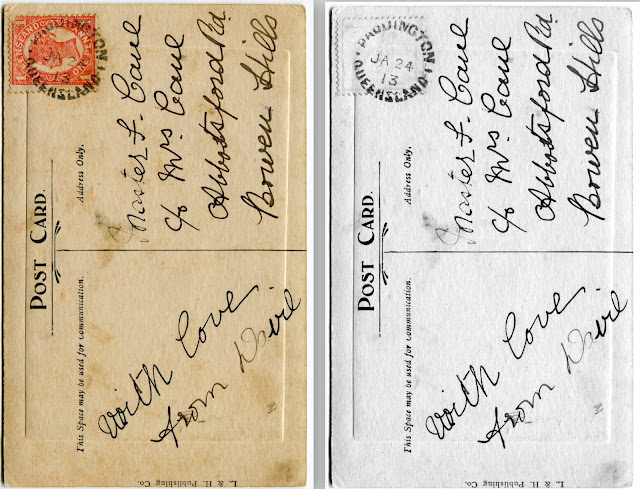 PADDINGTON
JA
13
QUEENSLAND
POST CARD.
Address Only.
Master F.
c/o Mrs
Abbotsford Rd
Bowen Hills
This Space may be used for Communication.
With Love
from
L. & H. Publishing Co.
PADDINGTON
JA 24
13
QUEENSLAND
POST CARD.
Address Only.
Master F.
c/o Mrs
Abbotsford Rd
Bowen Hills
This Space may be used for Communication.
With Love
from
L. & H. Publishing Co.